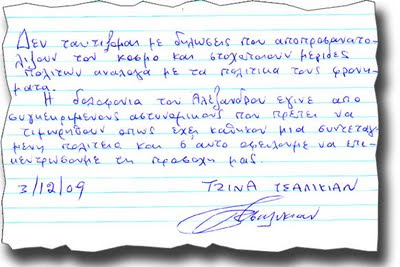 Δεν ταυτιζομαι με δηλωσεις που αποπροσανατο-
λιζουν τον κοσμο και στοχοποιουν μεριδες
πολιτων αναλογα με τα πολιτικα τους φρονη-
ματα.
Η δολοφονια του Αλεξανδρου εγινε απο
συγκεκριμενους αστυνομικους που πρεπει να
τιμωρηθουν οπως εχει καθηκον μια συντεταγ-
μενη πολιτεια και σ αυτο οφειλουμε να επι-
κεντρωσουμε τη προσοχη μας
3/12/09 ΤΖΙΝΑ ΤΣΑΛΙΚΙΑΝ
Τσαλικιαν